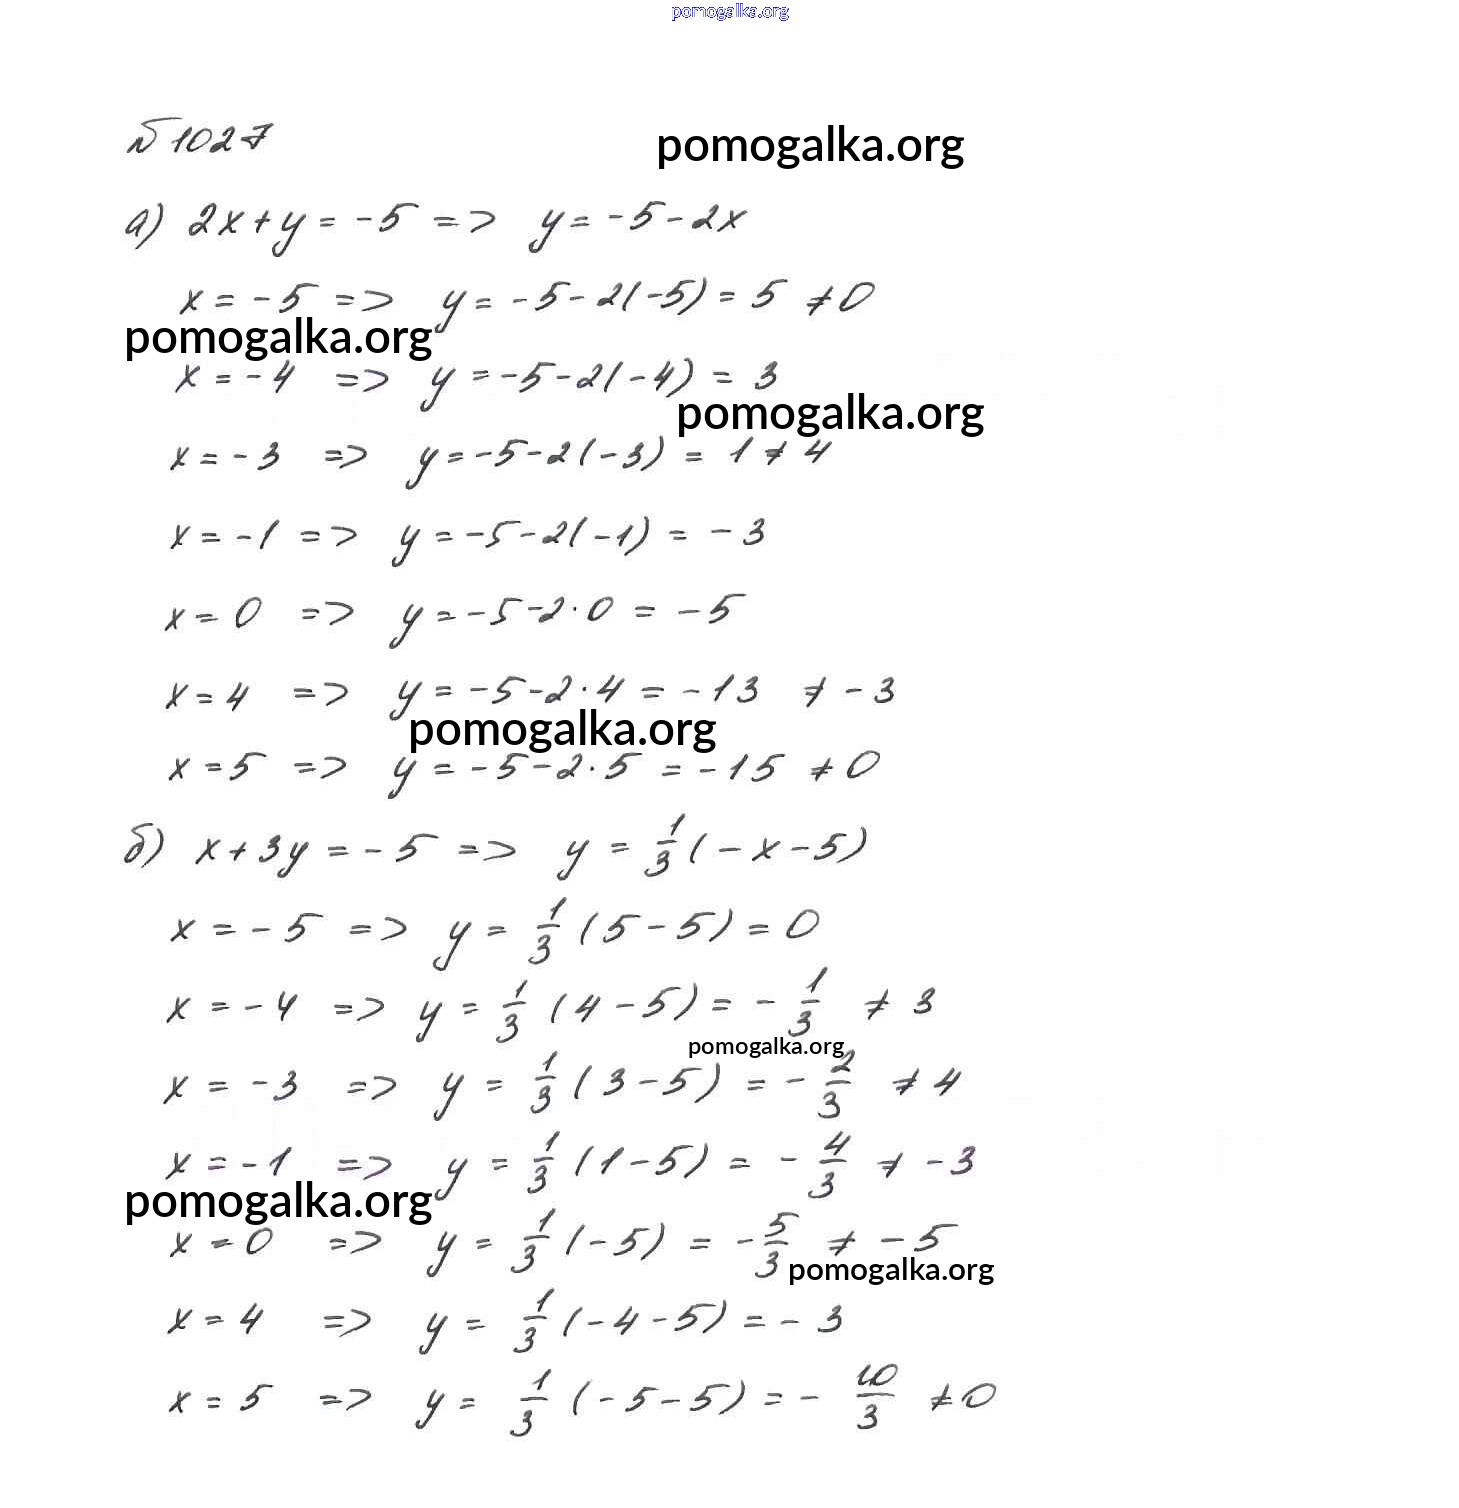 pomogalka.org
№ 1027
pomogalka.org
а) 2x + y = -5 => y = -5 - 2x
x = -5 => y = -5 - 2(-5) = 5 ≠ 0
pomogalka.org
x = -4 => y = -5 - 2(-4) = 3
pomogalka.org
x = -3 => y = -5 - 2(-3) = 1 ≠ 4
x = -1 => y = -5 - 2(-1) = -3
x = 0 => y = -5 - 2·0 = -5
x = 4 => y = -5 - 2·4 = -13 ≠ -3
pomogalka.org
x = 5 => y = -5 - 2·5 = -15 ≠ 0
б) x + 3y = -5 => y = 1/3 (-x - 5)
x = -5 => y = 1/3 (5 - 5) = 0
x = -4 => y = 1/3 (4 - 5) = - 1/3 ≠ 3
pomogalka.org
x = -3 => y = 1/3 (3 - 5) = - 2/3 ≠ 4
x = -1 => y = 1/3 (1 - 5) = - 4/3 ≠ -3
pomogalka.org
x = 0 => y = 1/3 (-5) = - 5/3 ≠ -5
pomogalka.org
x = 4 => y = 1/3 (-4 - 5) = -3
x = 5 => y = 1/3 (-5 - 5) = - 10/3 ≠ 0